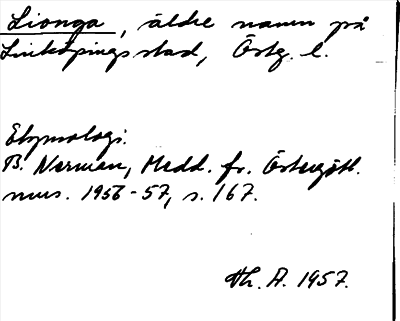 Lionga, äldre namn på
Linköpings stad, Östg. l.
Etymologi:
B. Nerman, Medd. fr. Östergötl.
mus. 1956-57, s. 167.
Th. A. 1957.